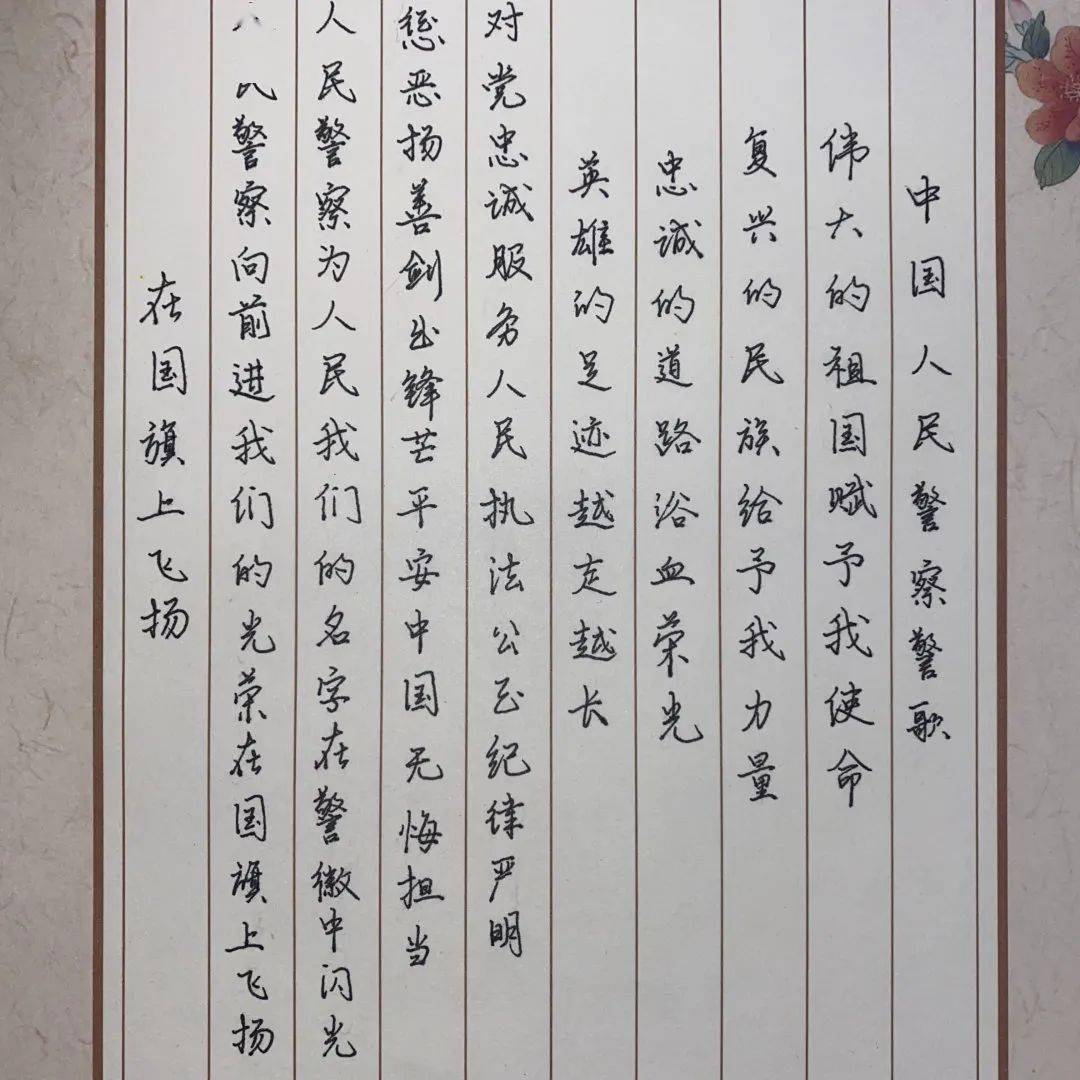 中国人民警察警歌
伟大的祖国赋予我使命
复兴的民族给予我力量
忠诚的道路浴血荣光
英雄的足迹越走越长
对党忠诚服务人民执法公正纪律严明
惩恶扬善剑出锋芒平安中国无悔担当
人民警察为人民我们的名字在警徽中闪光
警察向前进我们的光荣在国旗上飞扬
在国旗上飞扬